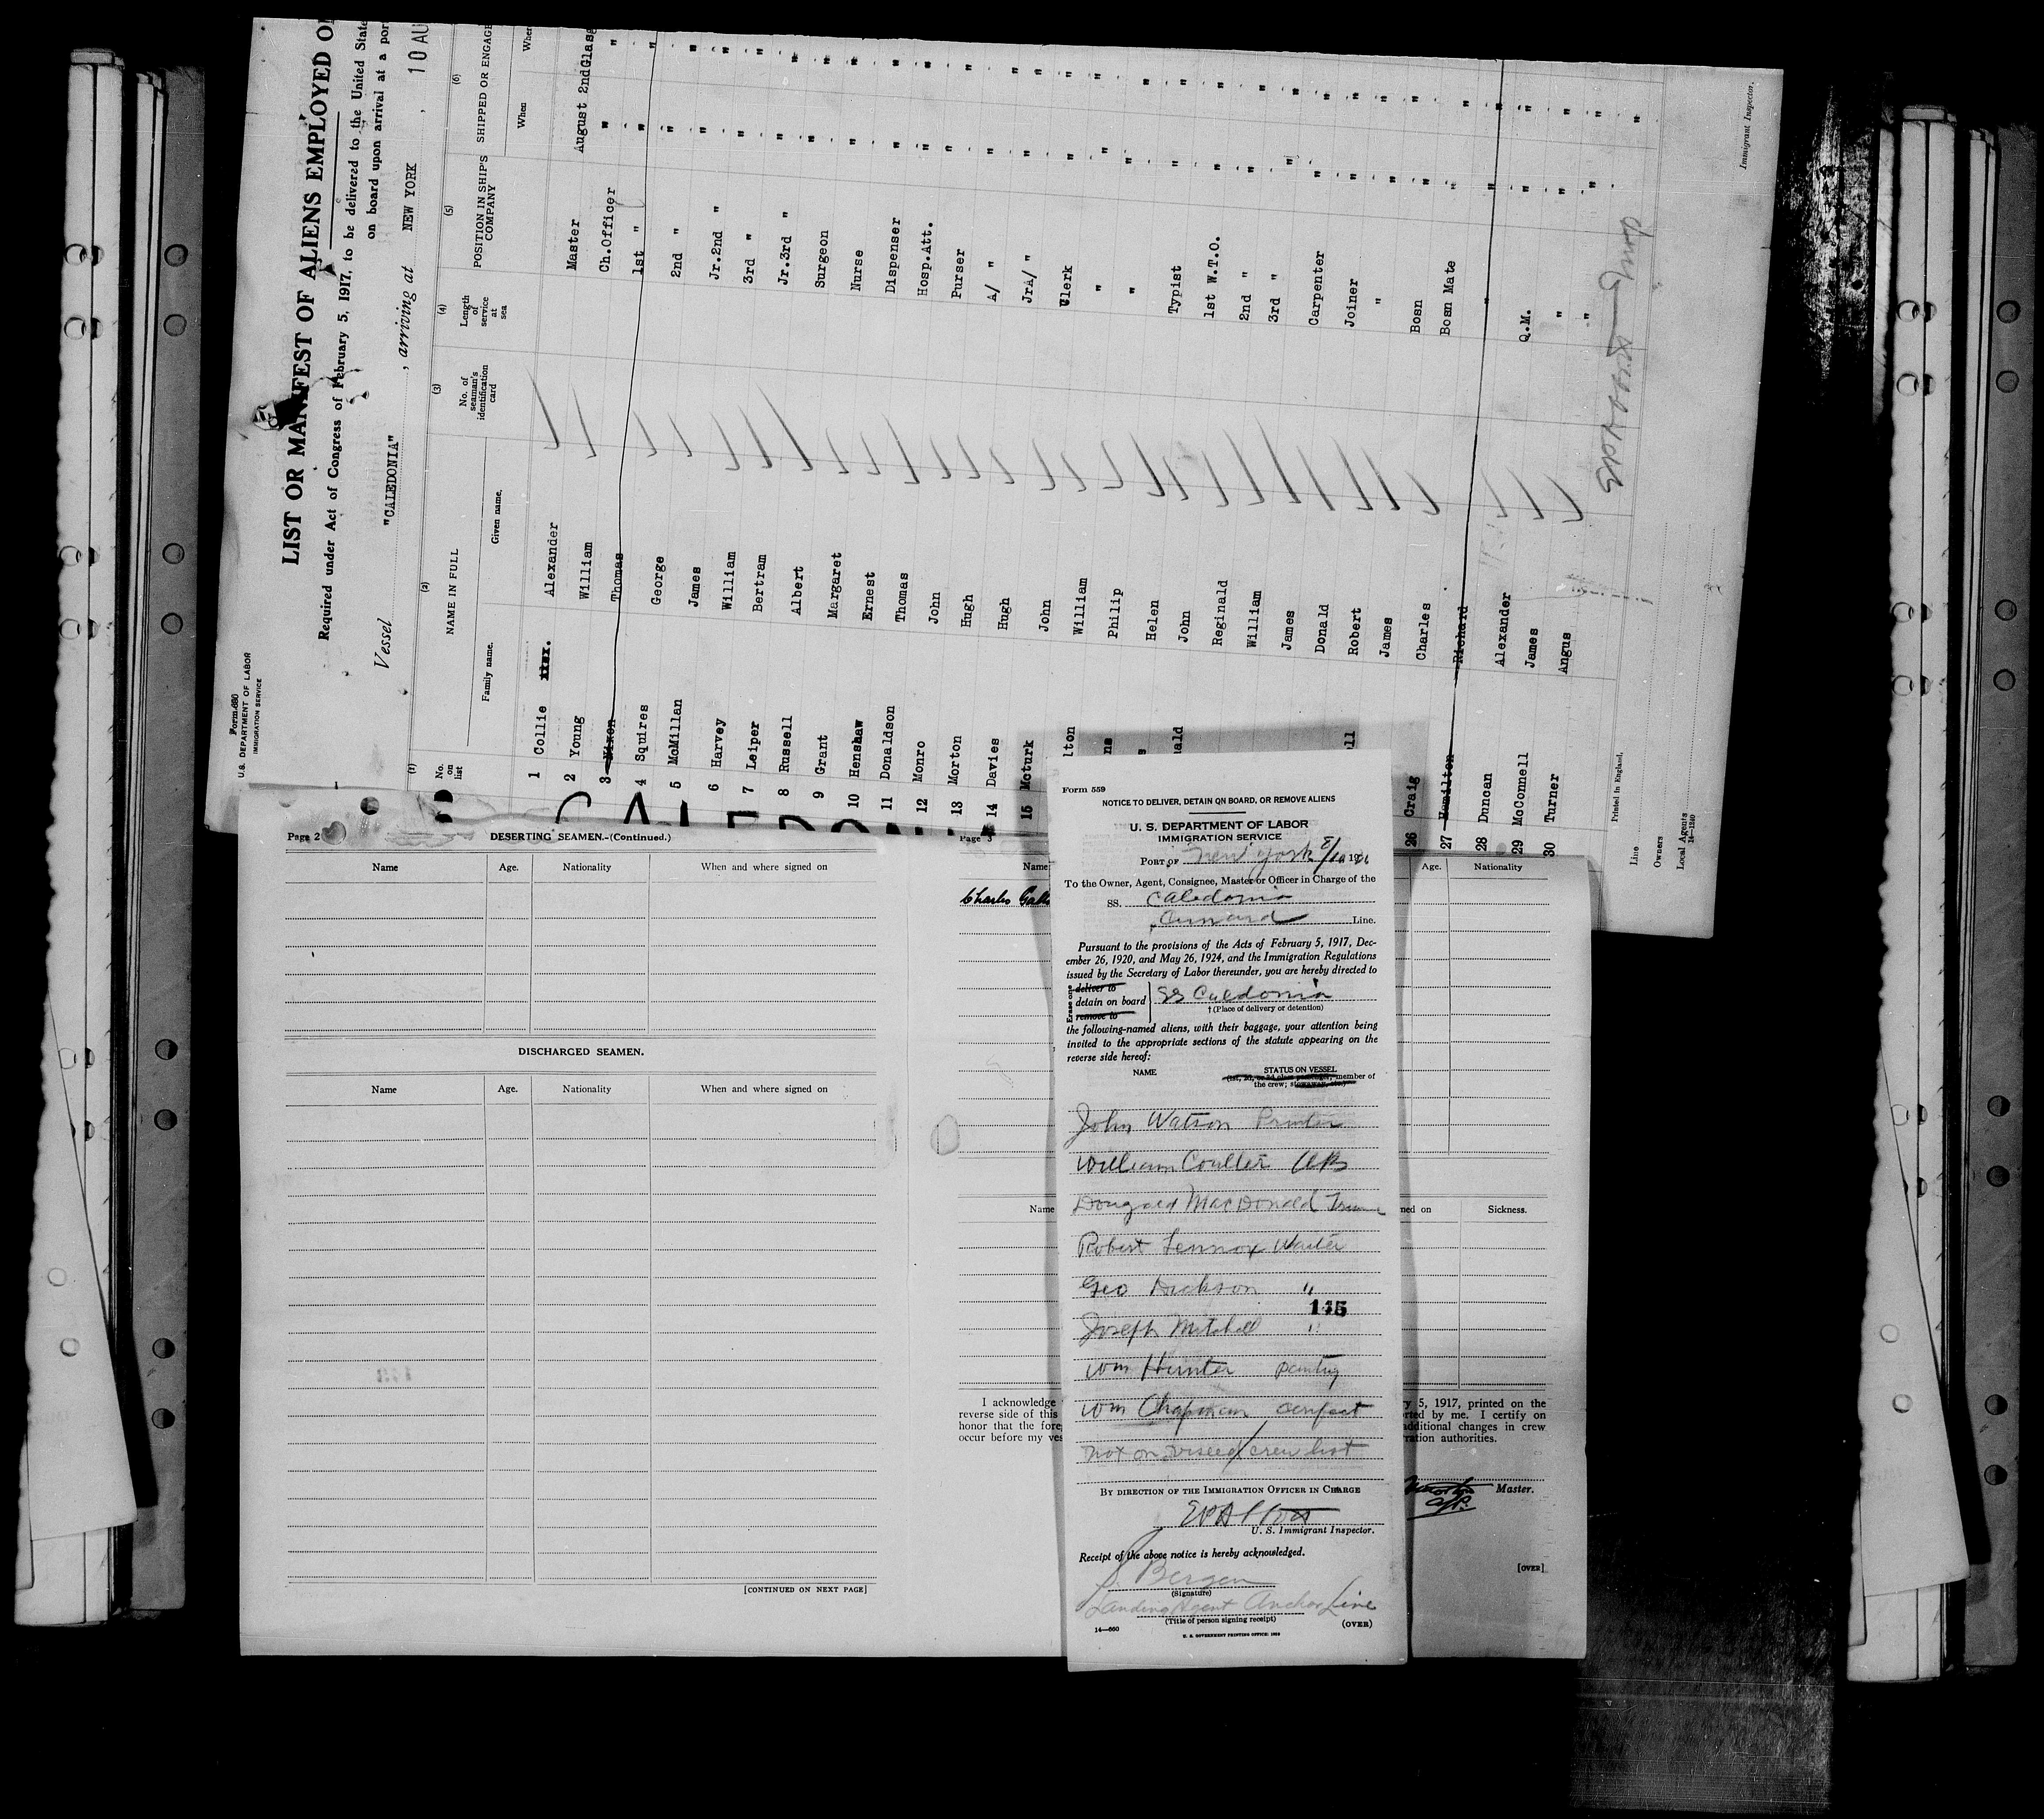 Form 680
U. S. DEPARTMENT OF LABOR
IMMIGRATION SERVICE
LIST OR MANIFEST OF ALIENS EMPLOYED O
Required under Act of Congress of February 5, 1917, to be delivered to the United State
on board upon arrival at a por
Vessel "CALEDONIA" , arriving at NEW YORK , 10 AU
(1) (2) (3) (4) (5) (6)
No. on list NAME IN FULL No. of seaman's identification card Length of service at sea POSITION IN SHIP'S COMPANY SHIPPED OR ENGAGE
Family name. Given name. When Wher
1 Collie Alexander Master August 2nd Glasg
2 Young William Ch.Officer " "
3 Nixon Thomas 1st " " "
4 Squires George 2nd " " "
5 McMillan James Jr.2nd " " "
6 Harvey William 3rd " " "
7 Leiper Bertram Jr.3rd " " "
8 Russell Albert Surgeon " "
9 Grant Margaret Nurse " "
10 Henshaw Ernest Dispenser " "
11 Donaldson Thomas Hosp.Att. " "
12 Monro John Purser " "
13 Morton Hugh A/ " " "
14 Davies Hugh JrA/ " " "
15 McTurk John Clerk " "
lton William " " "
ns Philip " " "
Helen Typist " "
ald John 1st W.T.O. " "
Reginald 2nd " " "
William 3rd " " "
James Carpenter " "
Donald Joiner " "
ll Robert " " "
James Bosn " "
26 Craig Charles Bosn Mate " "
27 Hamilton Richard " " "
28 Duncan Alexander Q.M. " "
29 McConnell James " " "
30 Turner Angus " " "
Printed in England.
Line
Owners
Local Agents
14—1240
Immigrant Inspector.
CALEDONIA
Page 2
DESERTING SEAMEN.-(Continued.)
Name Age. Nationality When and where signed on
DISCHARGED SEAMEN.
Name Age. Nationality When and where signed on
[CONTINUED ON NEXT PAGE]
Page 3
Name
Charles
Age. Nationality
Name
ned on Sickness.
I acknowledge
reverse side of this
honor that the fore
occur before my ves
ry 5, 1917, printed on the
orted by me. I certify on
additional changes in crew
ration authorities.
Master.
[OVER]
Form 559
NOTICE TO DELIVER, DETAIN ON BOARD, OR REMOVE ALIENS
U. S. DEPARTMENT OF LABOR
IMMIGRATION SERVICE
PORT OF New York 8/10 19
To the Owner, Agent, Consignee, Master or Officer in Charge of the
SS. Caledonia
Cunard Line.
Pursuant to the provisions of the Acts of February 5, 1917, Dec-
ember 26, 1920, and May 26, 1924, and the Immigration Regulations
issued by the Secretary of Labor thereunder, you are hereby directed to
Erase one
deliver to
detain on board SS Caledonia
remove to † (Place of delivery or detention)
the following-named aliens, with their baggage, your attention being
invited to the appropriate sections of the statute appearing on the
reverse side hereof:
NAME STATUS ON VESSEL
(1st, 2d, or 3d class passenger; member of
the crew; stowaway, etc.)
John Watson Printer
William Coulter AB
Dougald MacDonald
Robert Lennox Waiter
Geo Dickson "
145
Joseph Mitchell "
Wm Hunter pantry
Wm Chapman
Not on viseed crew list
BY DIRECTION OF THE IMMIGRATION OFFICER IN CHARGE
U. S. Immigrant Inspector.
Receipt of the above notice is hereby acknowledged.
Bergen
(Signature)
Landing Agent Anchor Line
(Title of person signing receipt)
14—660
(OVER)
U. S. GOVERNMENT PRINTING OFFICE